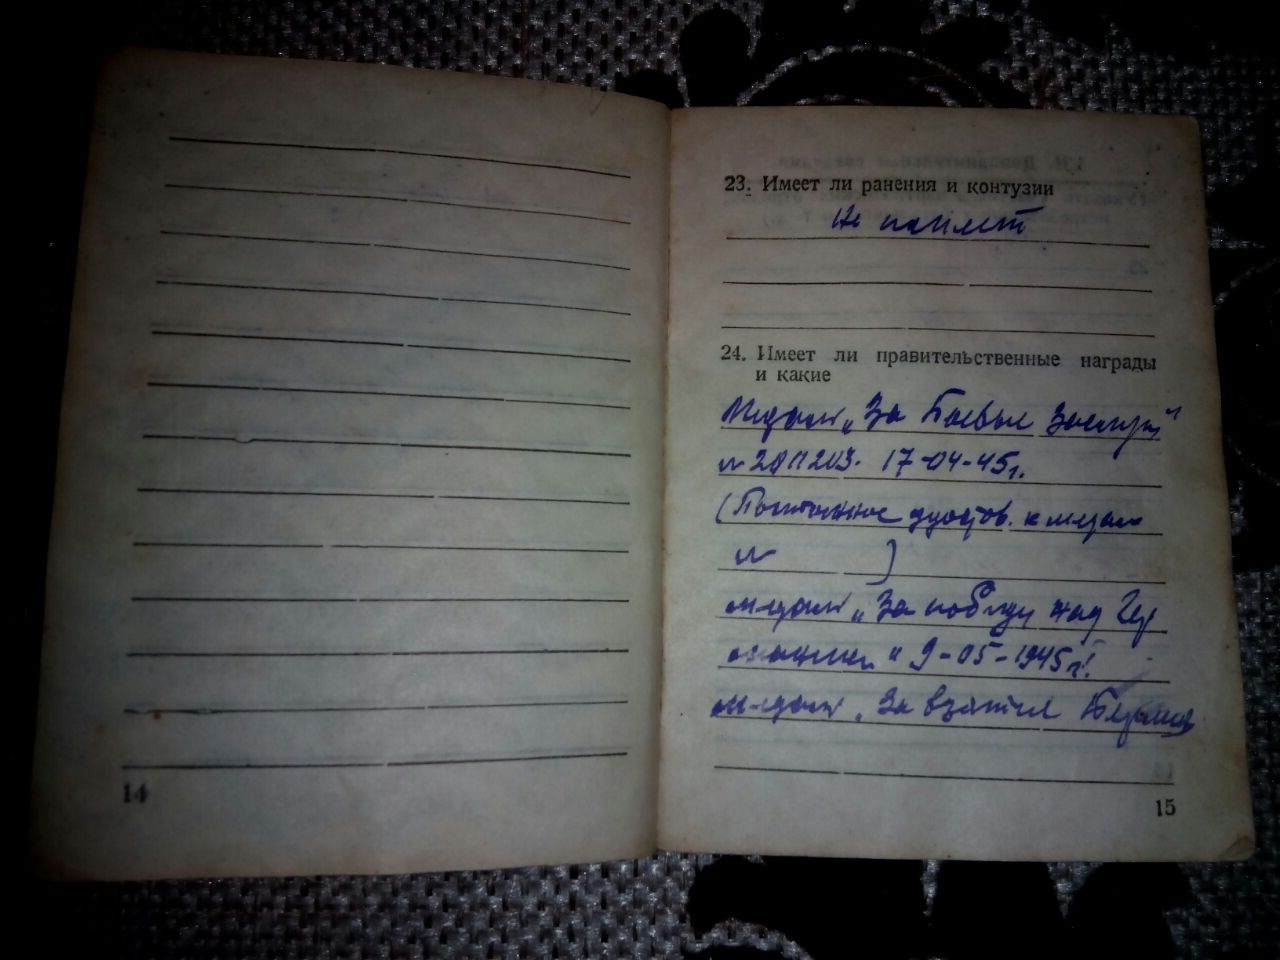 23. Имеет ли ранения и контузии
Не имеет
24. Имеет ли правительственные награды
и какие
Медаль „За Боевые Заслуги"
17-04-45г.
(Постоянное удостов. к медали
№ )
медаль „За победу над Гер
манией" 9-05-1945г.
медаль „За взятие Берлина
14
15